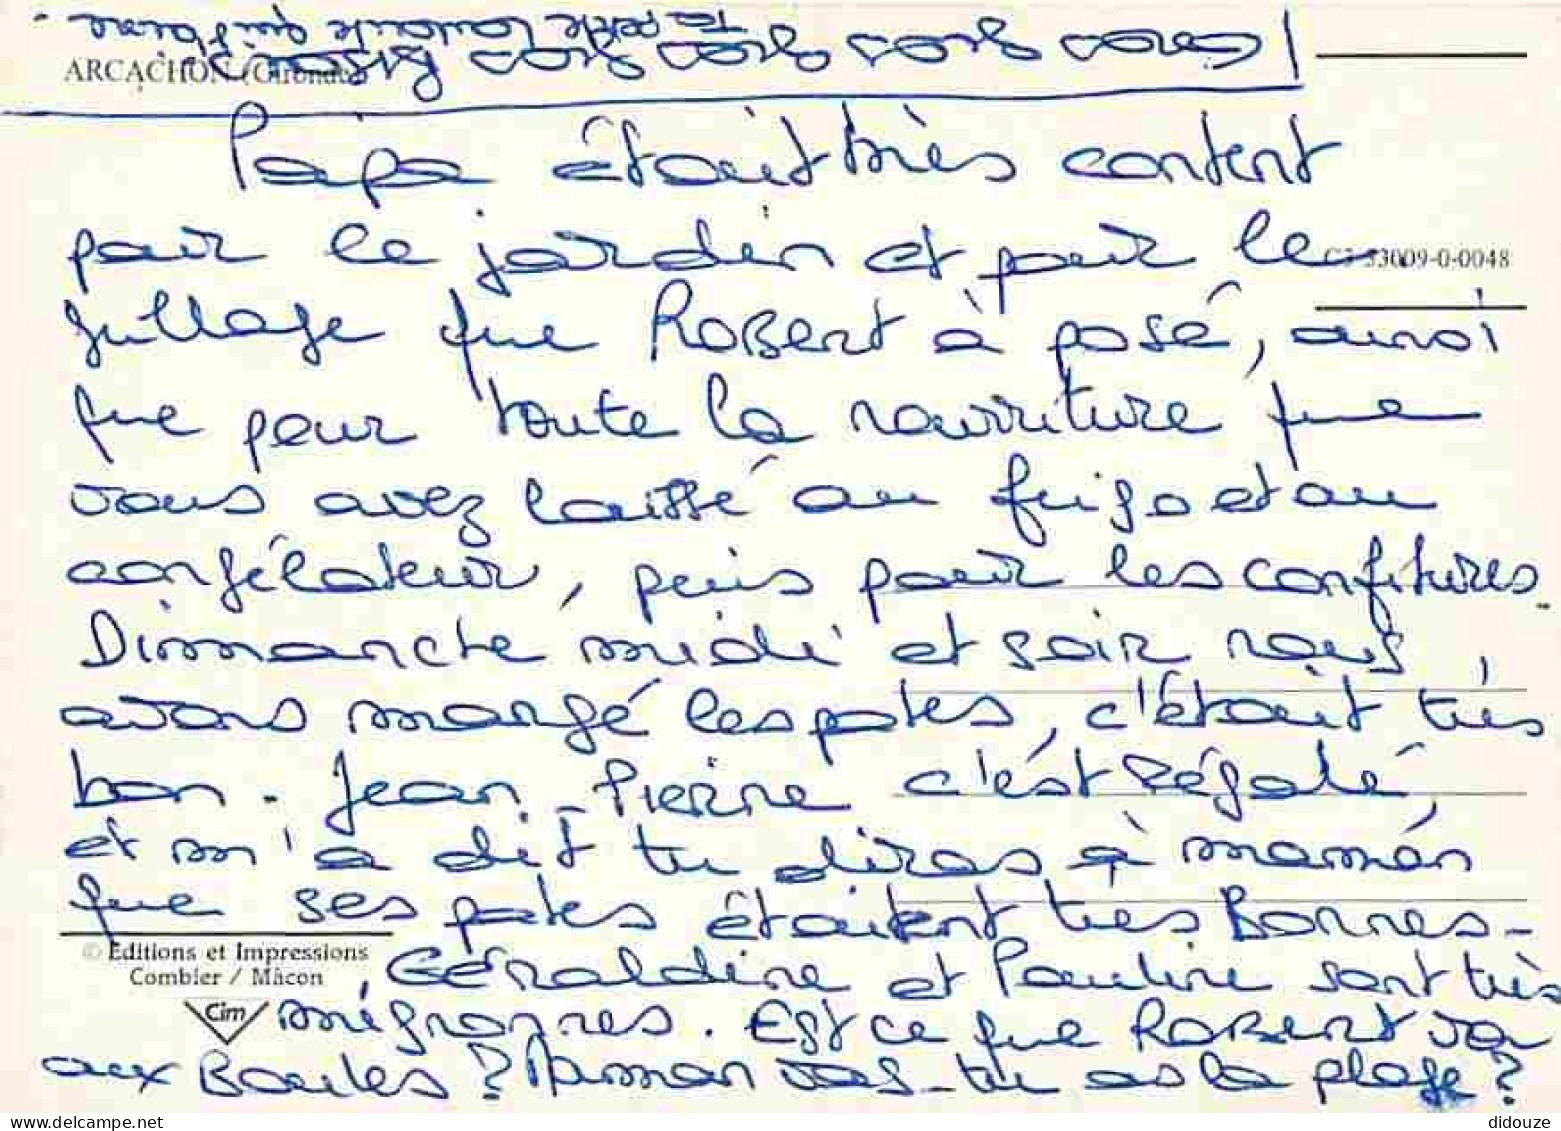 Gros Gros Gros Gros Gros Bisous.
Ta petite louloute qui t'aime.
ARCACHON (Gironde)
Papa était très content
pour le jardin et pour le
C3 33009-0-0048
grillage que Robert à posé, ainsi
que pour toute la nourriture que
vous avez laissé au frigo et au
congélateur, puis pour les confitures.
Dimanche midi et soir nous
avons mangé les pates, c'était très
bon. Jean-Pierre c'est régalé,
et m'a dit tu diras à maman
que ses pates étaient très Bonnes-
© Editions et Impressions
Combier / Mâcon
Cim
Géraldine et Pauline sont très
mignonnes. Est ce que Robert va
aux Boules? Maman vas-tu as la plage?
delcampe.net
didouze